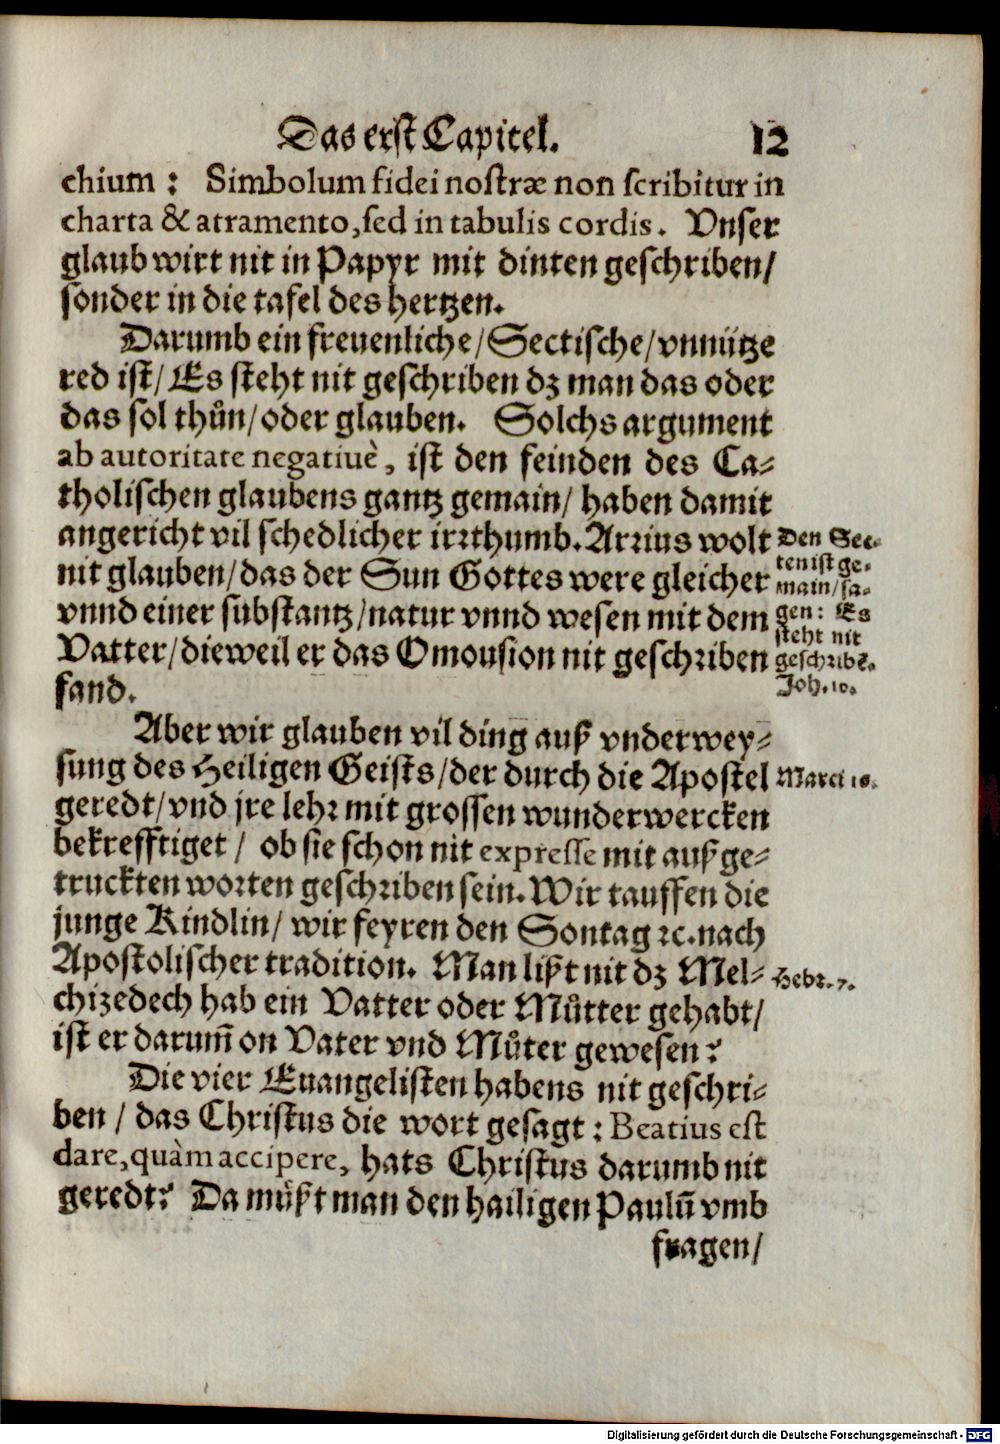 Das erst Capitel. 12
chium: Simbolum fidei nostræ non scribitur in
charta & atramento, sed in tabulis cordis. Vnser
glaub wirt nit in Papyr mit dinten geschriben/
sonder in die tafel des hertzen.
Darumb ein freuenliche/Sectische/vnnütze
red ist/Es steht nit geschriben dz man das oder
das sol thůn/oder glauben. Solchs argument
ab autoritate negatiuè, ist den feinden des Ca-
tholischen glaubens gantz gemain/ haben damit
angericht vil schedlicher irrthumb. Arrius wolt
nit glauben/das der Sun Gottes were gleicher
vnnd einer substantz/natur vnnd wesen mit dem
Vatter/dieweil er das Omousion nit geschriben
fand.
Den Sec-
ten ist ge-
main/sa-
gen: Es
steht nit
geschribē.
Joh. 10.
Aber wir glauben vil ding auß vnderwey-
sung des Heiligen Geists/der durch die Apostel
geredt/vnd jre lehr mit grossen wunderwercken
bekrefftiget/ ob sie schon nit expresse mit außge-
truckten worten geschriben sein. Wir tauffen die
junge Kindlin/ wir feyren den Sontag ꝛc. nach
Apostolischer tradition. Man lißt nit dz Mel-
chizedech hab ein Vatter oder Můtter gehabt/
ist er darum̃ on Vater vnd Můter gewesen?
Marci 16.
Hebr. 7.
Die vier Euangelisten habens nit geschri-
ben / das Christus die wort gesagt: Beatius est
dare, quàm accipere, hats Christus darumb nit
geredt? Da můßt man den hailigen Paulū vmb
fragen/
Digitalisierung gefördert durch die Deutsche Forschungsgemeinschaft - DFG